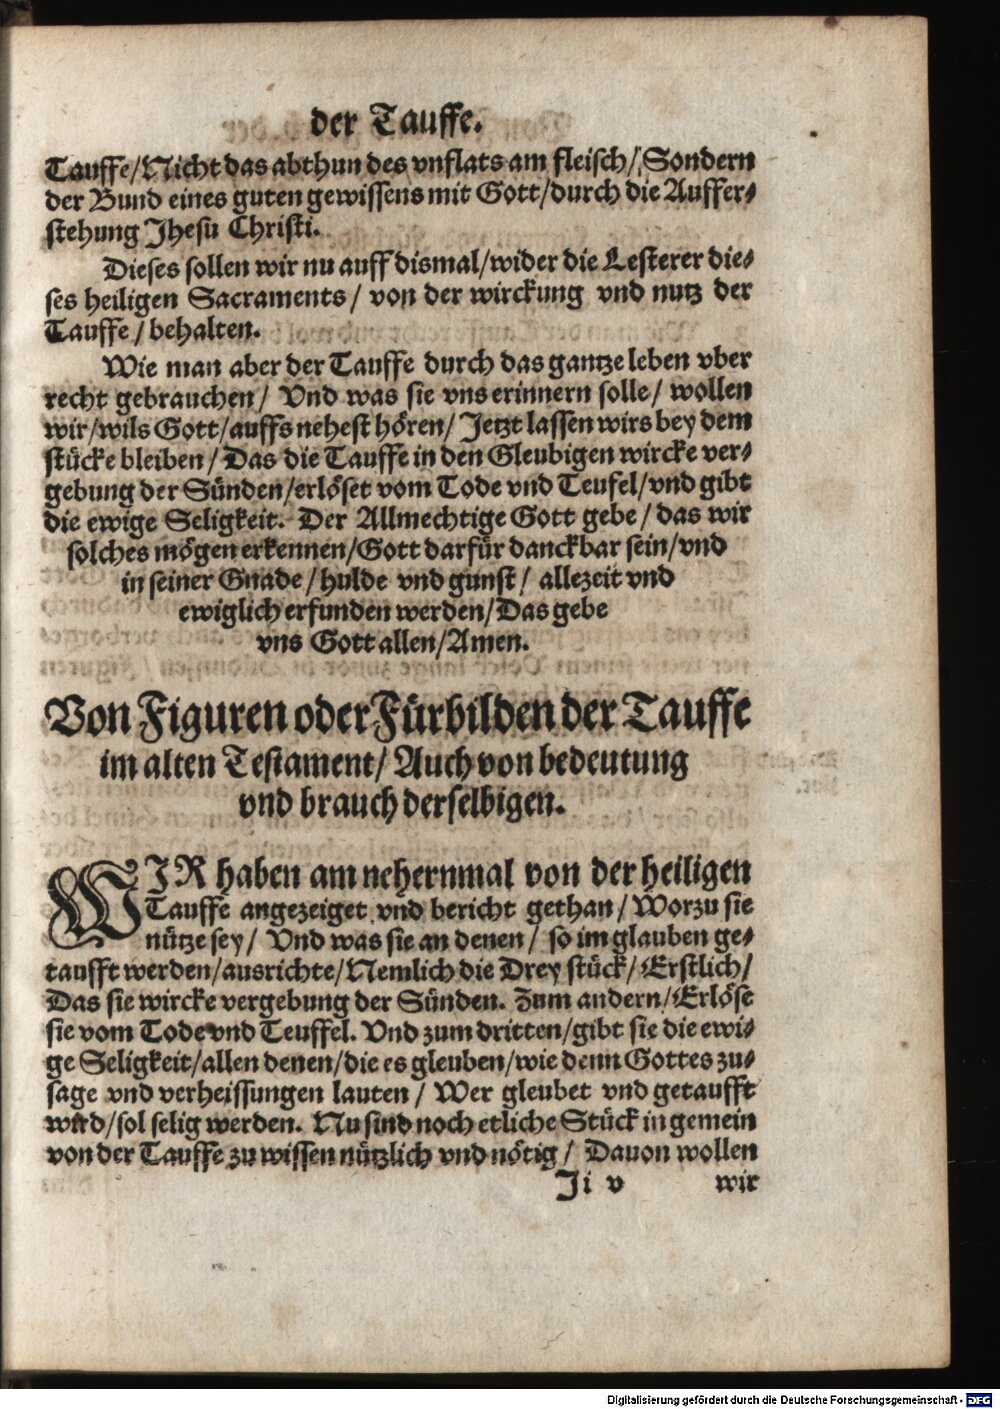 der Tauffe.
Tauffe/Nicht das abthun des vnflats am fleisch/Sondern
der Bund eines guten gewissens mit Gott/durch die Auffer-
stehung Jhesu Christi.
Dieses sollen wir nu auff dismal/wider die Lesterer die-
ses heiligen Sacraments/ von der wirckung vnd nutz der
Tauffe/behalten.
Wie man aber der Tauffe durch das gantze leben vber
recht gebrauchen/ Vnd was sie vns erinnern solle/ wollen
wir/wils Gott/auffs nehest hören/ Jetzt lassen wirs bey dem
stücke bleiben/ Das die Tauffe in den Gleubigen wircke ver-
gebung der Sünden/erlöset vom Tode vnd Teufel/vnd gibt
die ewige Seligkeit. Der Allmechtige Gott gebe/ das wir
solches mögen erkennen/Gott darfür danckbar sein/vnd
in seiner Gnade/hulde vnd gunst/ allezeit vnd
ewiglich erfunden werden/Das gebe
vns Gott allen/Amen.
Von Figuren oder Fürbilden der Tauffe
im alten Testament/ Auch von bedeutung
vnd brauch derselbigen.
WJR haben am nehernmal von der heiligen
Tauffe angezeiget vnd bericht gethan/ Worzu sie
nütze sey/ Vnd was sie an denen/ so im glauben ge-
taufft werden/ausrichte/Nemlich die Drey stück/ Erstlich/
Das sie wircke vergebung der Sünden. Zum andern/Erlöse
sie vom Tode vnd Teuffel. Vnd zum dritten/gibt sie die ewi-
ge Seligkeit/allen denen/die es gleuben/wie denn Gottes zu-
sage vnd verheissungen lauten/ Wer gleubet vnd getaufft
wird/sol selig werden. Nu sind noch etliche Stück in gemein
von der Tauffe zu wissen nützlich vnd nötig/ Dauon wollen
Ji v wir
Digitalisierung gefördert durch die Deutsche Forschungsgemeinschaft - DFG